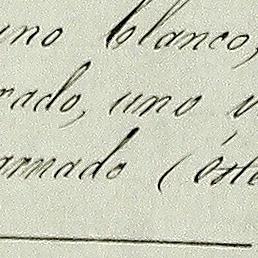 uno blanco,
rado, uno v
armado (óste